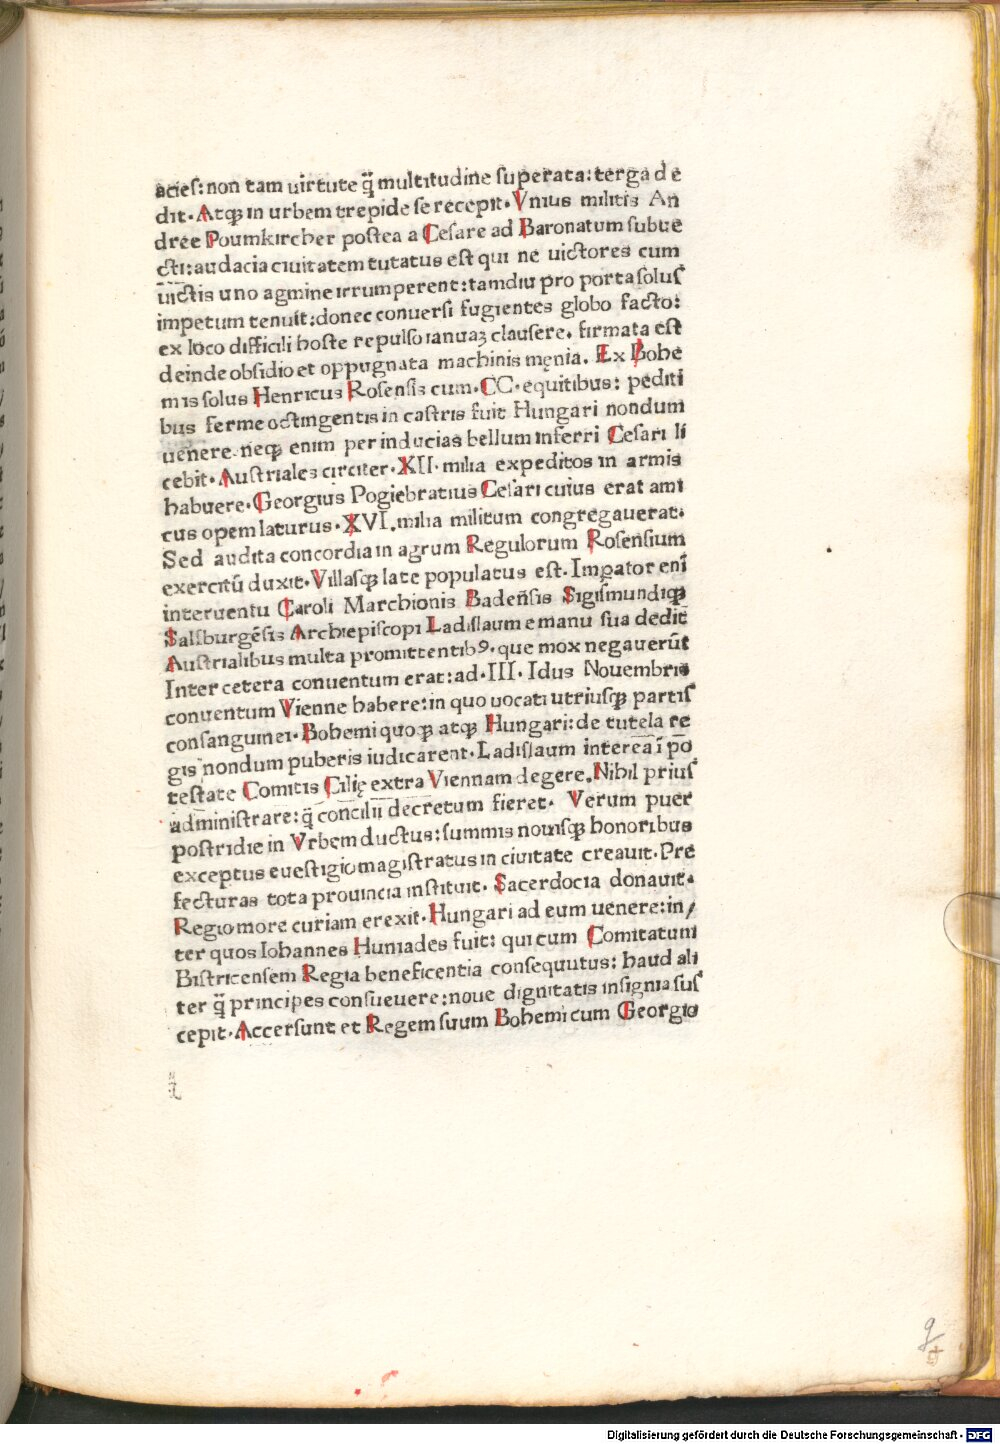 acies: non tam uirtute q̃ multitudine superata: terga de
dit. Atqꝫ in urbem trepide se recepit. Vnius militis An
dree Poumkircher postea a Cesare ad Baronatum subue
cti: audacia ciuitatem tutatus est qui ne uictores cum
uictis uno agmine irrumperent: tamdiu pro porta solus
impetum tenuit: donec conuersi fugientes globo facto:
ex loco difficili hoste repulso ianuaꝫ clausere. firmata est
deinde obsidio et oppugnata machinis męnia. Ex Bohe
mis solus Henricus Rosensis cum. CC. equitibus: pediti
bus ferme octingentis in castris fuit Hungari nondum
uenere. neqꝫ enim per inducias bellum inferri Cesari li
cebit. Australes circiter. XII. milia expeditos in armis
habuere. Georgius Pogiebratius Cesari cuius erat ami
cus opem laturus. XVI. milia militum congregauerat.
Sed audita concordia in agrum Regulorum Rosensium
exercitū duxit. Villasqꝫ late populatus est. Impator enī
interuentu Caroli Marchionis Badeñsis Sigismundiqꝫ
Salsburgēsis Archiepiscopi Ladislaum e manu sua dedit
Australibus multa promittentibꝰ. que mox negauerūt
Inter cetera conuentum erat: ad. III. Idus Nouembris
conuentum Vienne habere: in quo uocati utriusqꝫ partis
consanguinei. Bohemi quoqꝫ atqꝫ Hungari: de tutela re
gis nondum puberis iudicarent. Ladislaum interea ī po
testate Comitis Cilię extra Viennam degere. Nihil prius
administrare: q̃ concilii decretum fieret. Verum puer
postridie in Vrbem ductus: summis nouisqꝫ honoribus
exceptus euestigio magistratus in ciuitate creauit. Pre
fecturas tota prouincia instituit. Sacerdocia donauit.
Regio more curiam erexit. Hungari ad eum uenere: in/
ter quos Iohannes Huniades fuit: qui cum Comitatum
Bistricensem Regia beneficentia consequutus: haud ali
ter q̃ principes consueuere: noue dignitatis insignia sus
cepit. Accersunt et Regem suum Bohemi cum Georgio
9
Digitalisierung gefördert durch die Deutsche Forschungsgemeinschaft - DFG